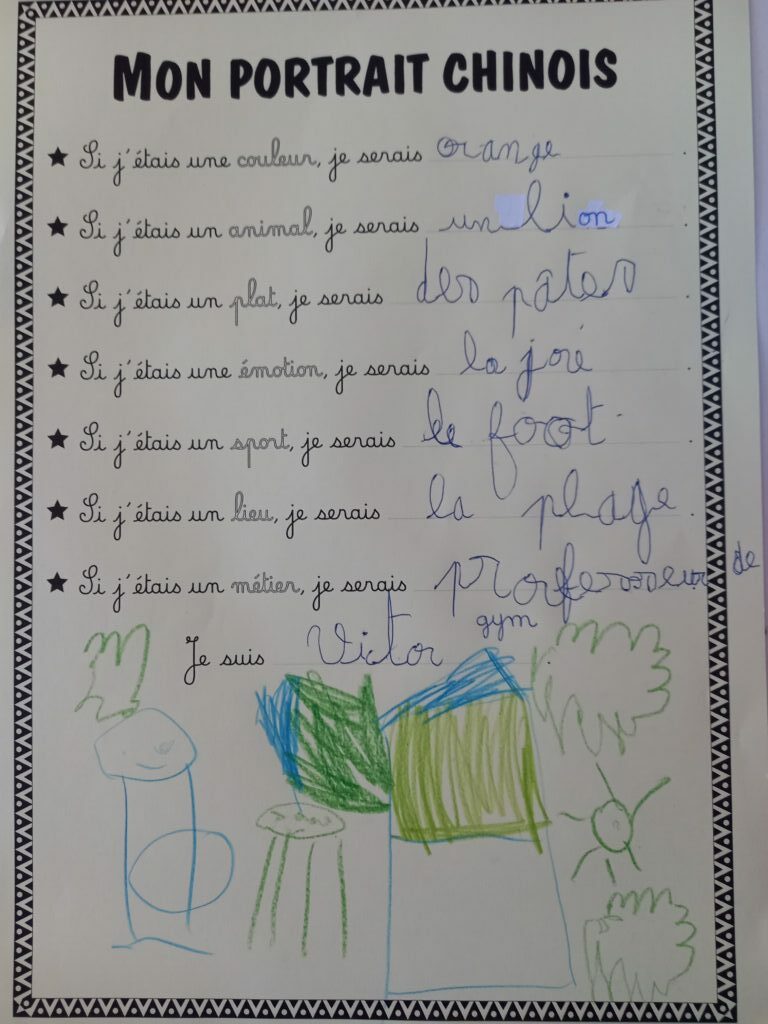 MON PORTRAIT CHINOIS
★ Si j'étais une couleur, je serais orange.
★ Si j'étais un animal, je serais un lion.
★ Si j'étais un plat, je serais des pâtes.
★ Si j'étais une émotion, je serais la joié.
★ Si j'étais un sport, je serais le foot.
★ Si j'étais un lieu, je serais la plage.
★ Si j'étais un métier, je serais proofesseur de
gym
Je suis Victor.